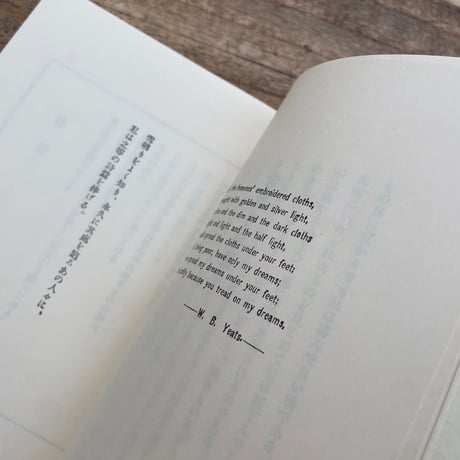 黎明をよく知り、永久に其黎を慰るあの人々に、
私は之等の詩篇を捧げる。
heavens' embroidered cloths,
with golden and silver light,
and the dim and the dark cloths
and light and the half light.
spread the cloths under your feet;
being poor, have only my dreams;
spread my dreams under your feet;
because you tread on my dreams.
——W. B. Yeats.——